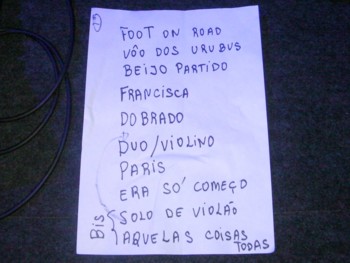 FOOT ON ROAD
VÔO DOS URUBUS
BEIJO PARTIDO
FRANCISCA
DOBRADO
DUO/VIOLINO
PARIS
ERA SÓ COMEÇO
BIS
SOLO DE VIOLÃO
AQUELAS COISAS
TODAS